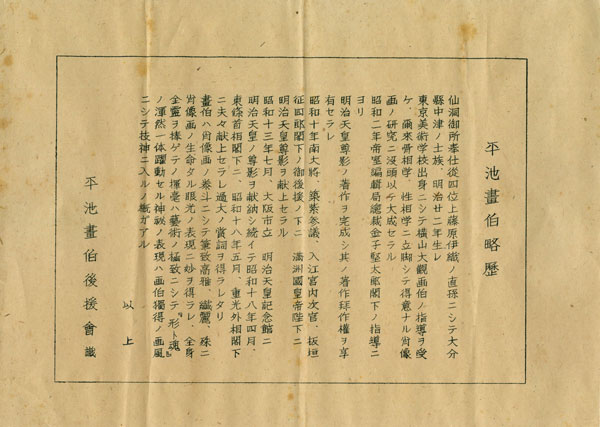 平池畫伯略歴
仙洞御所奉仕従四位上藤原伊織ノ直孫ニシテ大分
縣中津ノ士族、明治廿二年生レ
東京美術学校出身ニシテ横山大観画伯ノ指導ヲ受
ケ、爾来骨相学、性相学ニ立脚シテ得意ナル肖像
画ノ研究ニ没頭以テ大成セラル
昭和二年帝室編輯局総裁金子堅太郎閣下ノ指導ニ
ヨリ
明治天皇尊影ノ著作ヲ完成シ其ノ著作拝作権ヲ享
有セラレ
昭和十年南大将、築紫参議、入江宮内次官、板垣
征四郎閣下ノ御後援ノ下ニ 満洲國皇帝陛下ニ
明治天皇ノ尊影ヲ献上セラル
昭和十三年七月、大阪市立 明治天皇記念館ニ
明治天皇ノ尊影ヲ献納シ続イテ昭和十八年四月、
東條首相閣下ニ、昭和十八年五月、重光外相閣下
ニ夫々献上セラレ過大ノ賞詞ヲ得ラレタリ
畫伯ハ肖像画ノ泰斗ニシテ筆致高雅、繊麗、殊ニ
肖像画ノ生命タル眼光ノ表現ニ妙ヲ得ラレ、全身
全霊ヲ捧ゲテノ揮毫ハ藝術ノ極致ニシテ『形ト魂』
ノ渾然一体躍動セル神秘ノ表現ハ画伯獨得ノ画風
ニシテ技神ニ入ルノ概ガアル
以上
平池畫伯後援會識